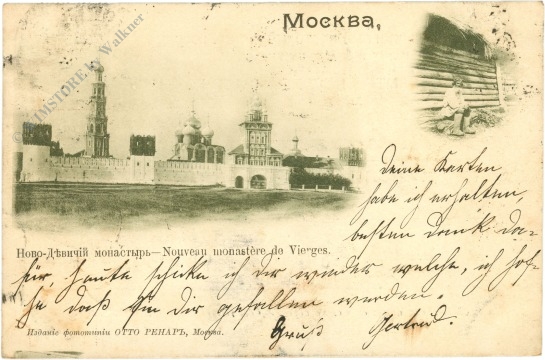 Москва,
Deine Karten
habe ich erhalten,
besten Dank da-
Ново-Дѣвичiй монастырь—Nouveau monastère de Vierges.
für heute schicke ich dir wieder welche, ich hof-
fe daß sie dir gefallen werden.
Gruß Gertrud.
Изданiе фототипiи ОТТО РЕНАРЪ, Москва.
STORE by Walkner